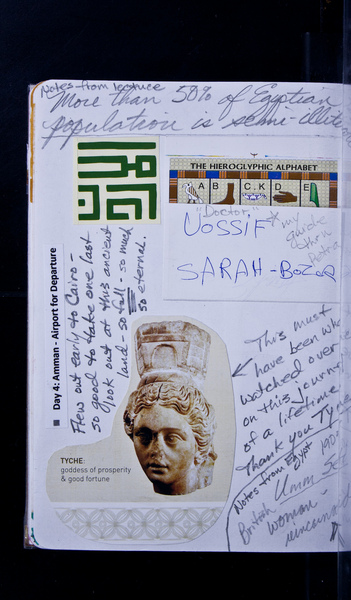 Notes from lecture
More than 50% of Egyptian
population is semi-illite
THE HIEROGLYPHIC ALPHABET
A B C,K D E
"Doctor"
UOSSIF * my
guide
thru
Petra
SARAH-BOZOR
Day 4: Amman - Airport for Departure
Flew out early to Cairo -
so good to take one last
look out at this ancient
land - so tall - so much
so eternal.
This must
have been who
watched over
on this journey
of a lifetime
Thank you Tyche
TYCHE:
goddess of prosperity
& good fortune
Notes from Egypt
British
woman -